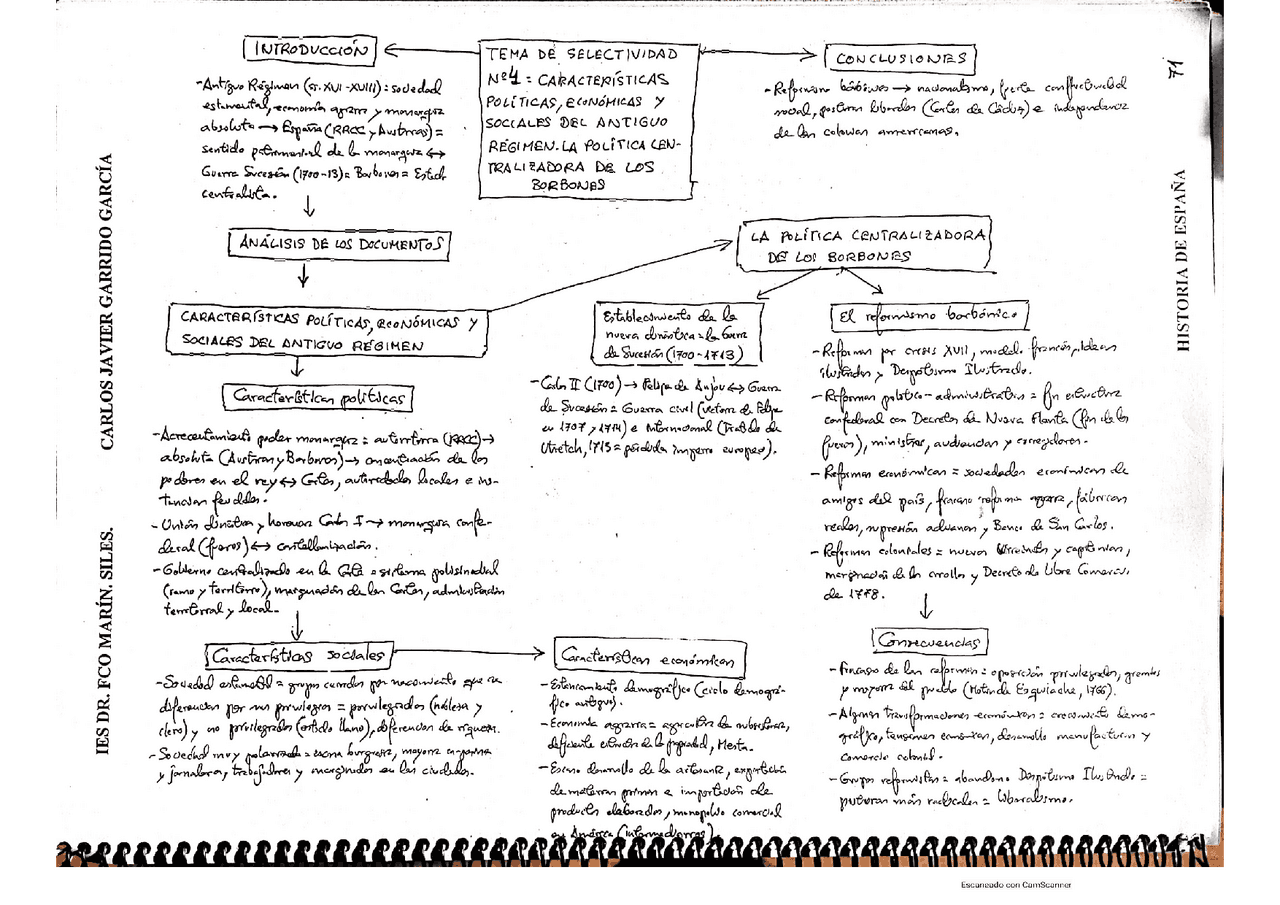 INTRODUCCIÓN
-Antiguo Régimen (s. XVI-XVIII): sociedad
estamental, economía agraria y monarquía
absoluta → España (RRCC y Austrias) =
sentido patrimonial de la monarquía ↔
Guerra Sucesión (1700-13) = Borbones = Estado
centralista.
TEMA DE SELECTIVIDAD
Nº4: CARACTERÍSTICAS
POLÍTICAS, ECONÓMICAS Y
SOCIALES DEL ANTIGUO
RÉGIMEN. LA POLÍTICA CEN-
TRALIZADORA DE LOS
BORBONES
CONCLUSIONES
-Reformismo borbónico → nacionalismo, fuerte conflictividad
social, posturas liberales (Cortes de Cádiz) e independencia
de las colonias americanas.
71
HISTORIA DE ESPAÑA
CARLOS JAVIER GARRIDO GARCÍA
IES DR. FCO MARÍN. SILES.
ANÁLISIS DE LOS DOCUMENTOS
CARACTERÍSTICAS POLÍTICAS, ECONÓMICAS Y
SOCIALES DEL ANTIGUO RÉGIMEN
Características políticas
-Acrecentamiento poder monarquía = autoritaria (RRCC) →
absoluta (Austrias y Borbones) → concentración de los
poderes en el rey ↔ Cortes, autoridades locales e ins-
tancias feudales.
-Unión dinástica y herencia Carlos I → monarquía confe-
deral (fueros) ↔ castellanización.
-Gobierno centralizado en la Corte = sistema polisinodial
(ramo y territorio), marginación de las Cortes, administración
territorial y local.
Características sociales
-Sociedad estamental = grupos cerrados por nacimiento que se
diferencian por sus privilegios = privilegiados (nobleza y
clero) y no privilegiados (estado llano), diferencias de riqueza.
-Sociedad muy polarizada = escasa burguesía, mayoría campesina
y jornalera, trabajadores y marginados en las ciudades.
Características económicas
-Estancamiento demográfico (ciclo demográ-
fico antiguo).
-Economía agraria = agricultura de subsistencia,
deficiente estructura de la propiedad, Mesta.
-Escaso desarrollo de la artesanía, exportación
de materias primas e importación de
productos elaborados, monopolio comercial
en América (intermediarios).
LA POLÍTICA CENTRALIZADORA
DE LOS BORBONES
Establecimiento de la
nueva dinastía = la Guerra
de Sucesión (1700-1713)
-Carlos II (1700) → Felipe de Anjou ↔ Guerra
de Sucesión = Guerra civil (victoria de Felipe
en 1707 y 1714) e internacional (Tratado de
Utrech, 1713 = pérdida imperio europeo).
El reformismo borbónico
-Reformas por crisis XVII, modelo francés, ideas
ilustradas y Despotismo Ilustrado.
-Reformas político-administrativas = fin estructura
confederal con Decretos de Nueva Planta (fin de los
fueros), ministros, audiencias y corregidores.
-Reformas económicas = sociedades económicas de
amigos del país, fracaso reforma agraria, fábricas
reales, supresión aduanas y Banco de San Carlos.
-Reformas coloniales = nuevos Virreinatos y capitanías,
marginación de los criollos y Decreto de Libre Comercio
de 1778.
Consecuencias
-Fracaso de las reformas = oposición privilegiados, gremios
y mayoría del pueblo (Motín de Esquilache, 1766).
-Algunas transformaciones económicas = crecimiento demo-
gráfico, tensiones económicas, desarrollo manufacturas y
comercio colonial.
-Grupos reformistas = abandono Despotismo Ilustrado =
posturas más radicales = liberalismo.
Escaneado con CamScanner